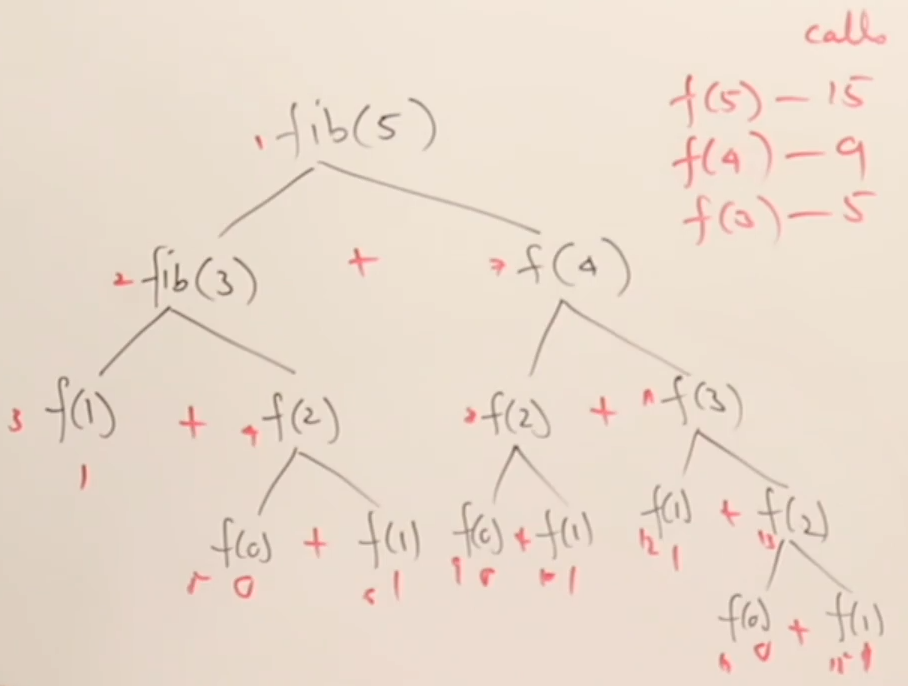 calls
f(5) — 15
1 fib(5)
f(4) — 9
f(3) — 5
2 fib(3) + 7 f(4)
3 f(1) + 4 f(2) 8 f(2) + 11 f(3)
1
f(0) + f(1) f(0) + f(1) f(1) + f(2)
5 0 6 1 9 0 10 1 12 1 13
f(0) + f(1)
14 0 15 1